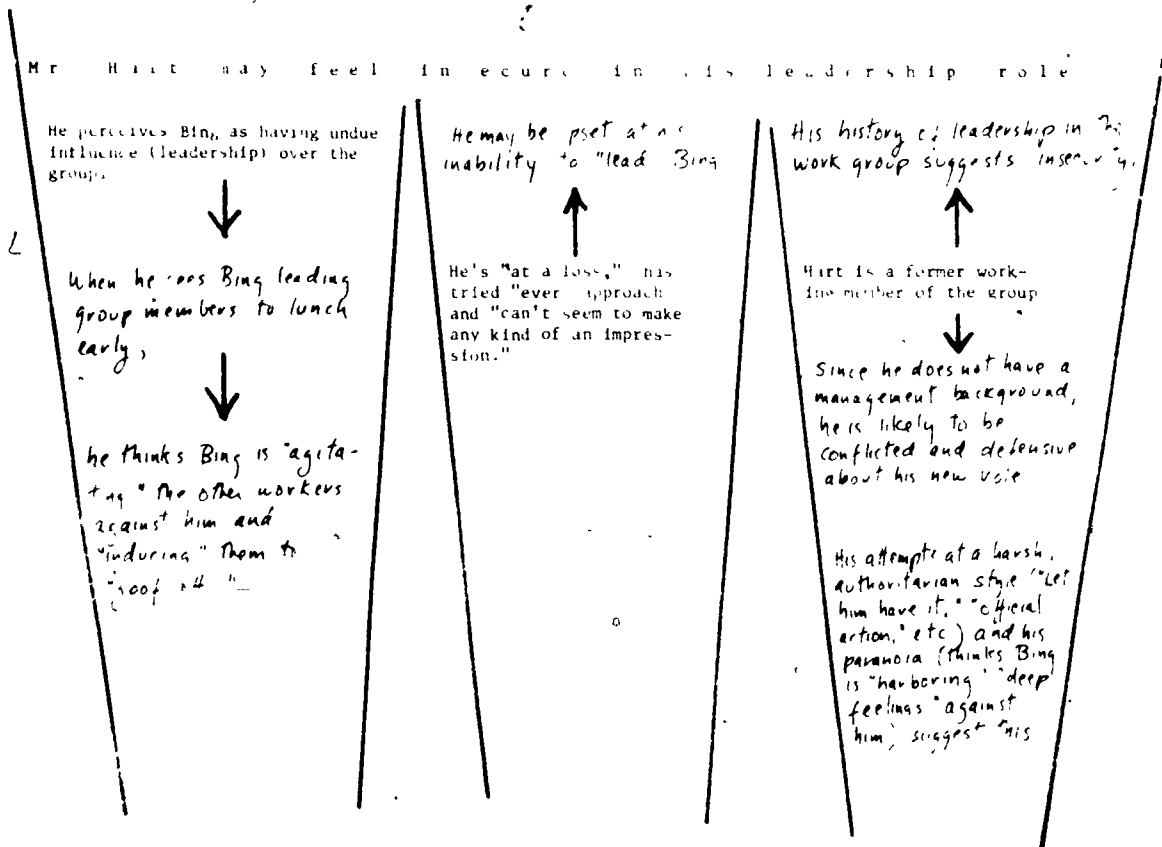 Mr Hart may feel insecure in his leadership role
He perceives Bing as having undue
influence (leadership) over the
group.
When he sees Bing leading
group members to lunch
early,
he thinks Bing is "agita-
ting" the other workers
against him and
"inducing" them to
"goof off"
He may be upset at his
inability to "lead" Bing
He's "at a loss," has
tried "every approach
and "can't seem to make
any kind of an impres-
sion."
His history of leadership in the
work group suggests insecurity.
Hart is a former work-
ing member of the group
Since he does not have a
management background,
he is likely to be
conflicted and defensive
about his new role
His attempts at a harsh,
authoritarian style ("Let
him have it," "official
action," etc) and his
paranoia (thinks Bing
is "harboring" "deep
feelings" against
him) suggest this